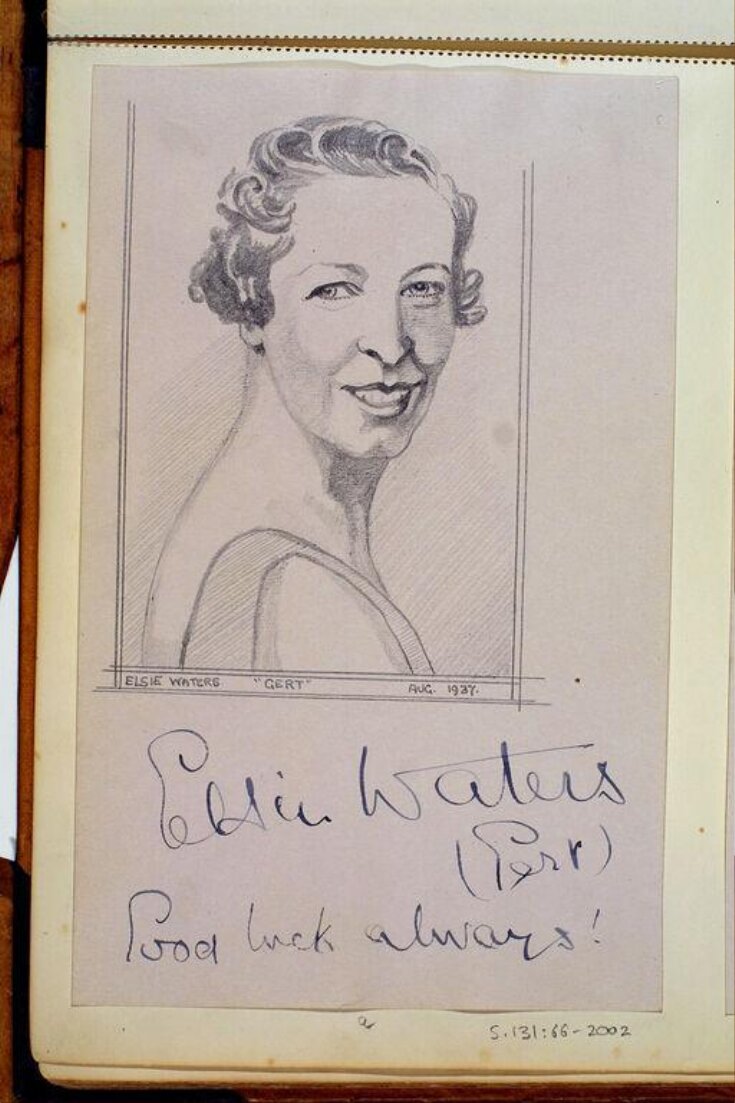 ELSIE WATERS "GERT" AUG. 1937.
Elsie Waters
(Gert)
Good luck always!
a
S.131:66-2002